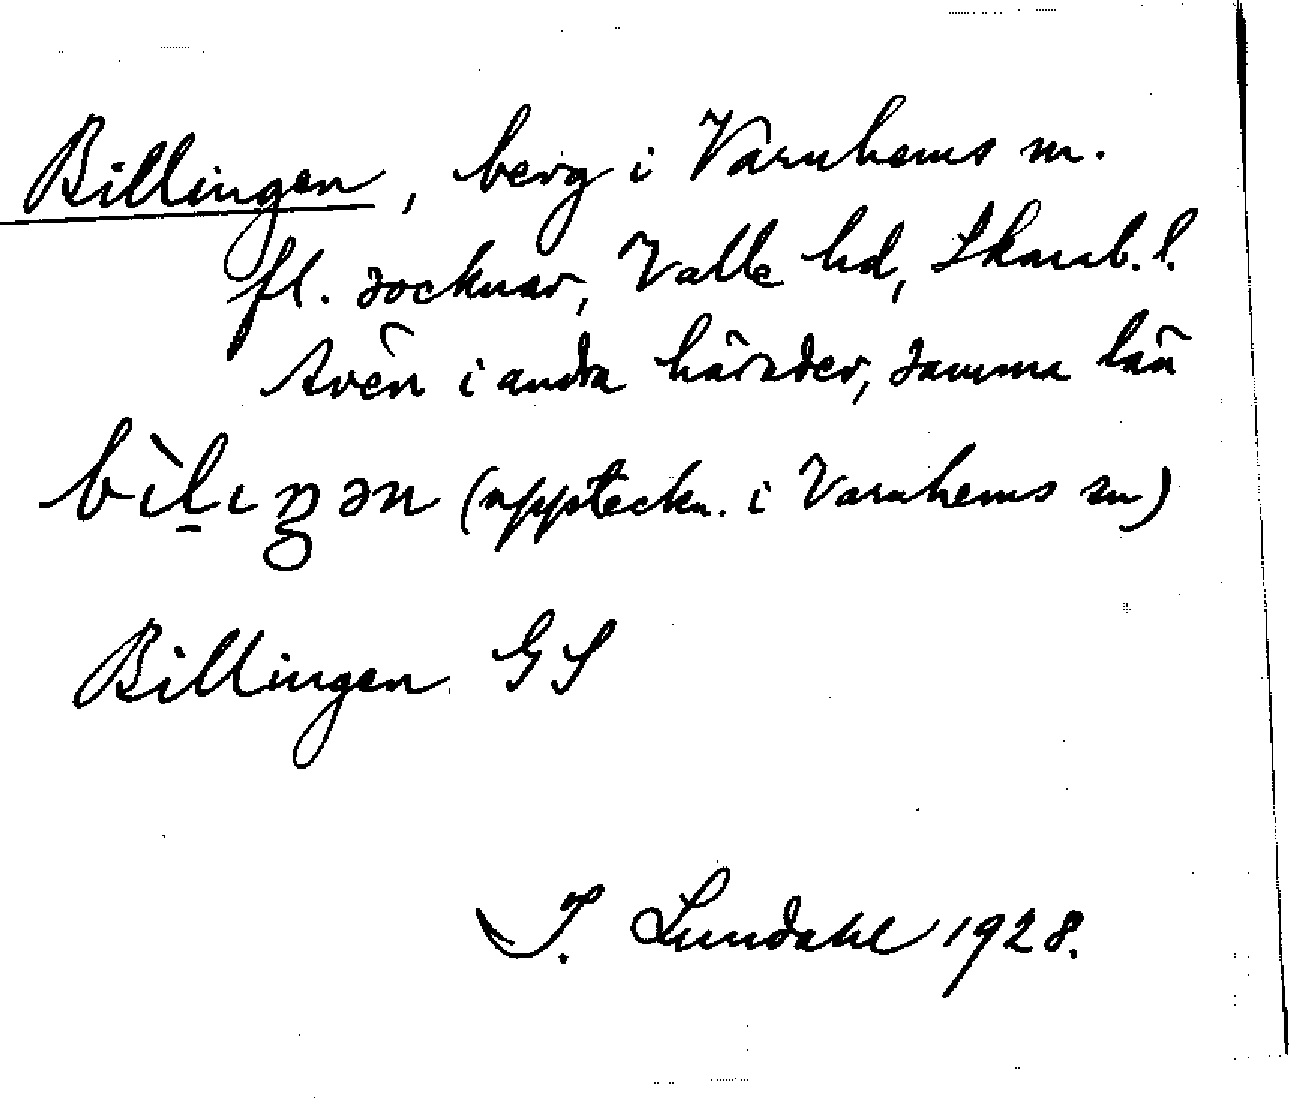 Billingen, berg i Varnhems sn.
fl. socknar, Valle hd, Skarab. l.
Även i andra härader, samma län
bìl̠ıŋən (uppteckn. i Varnhems sn)
Billingen GS
I. Lundahl 1928.